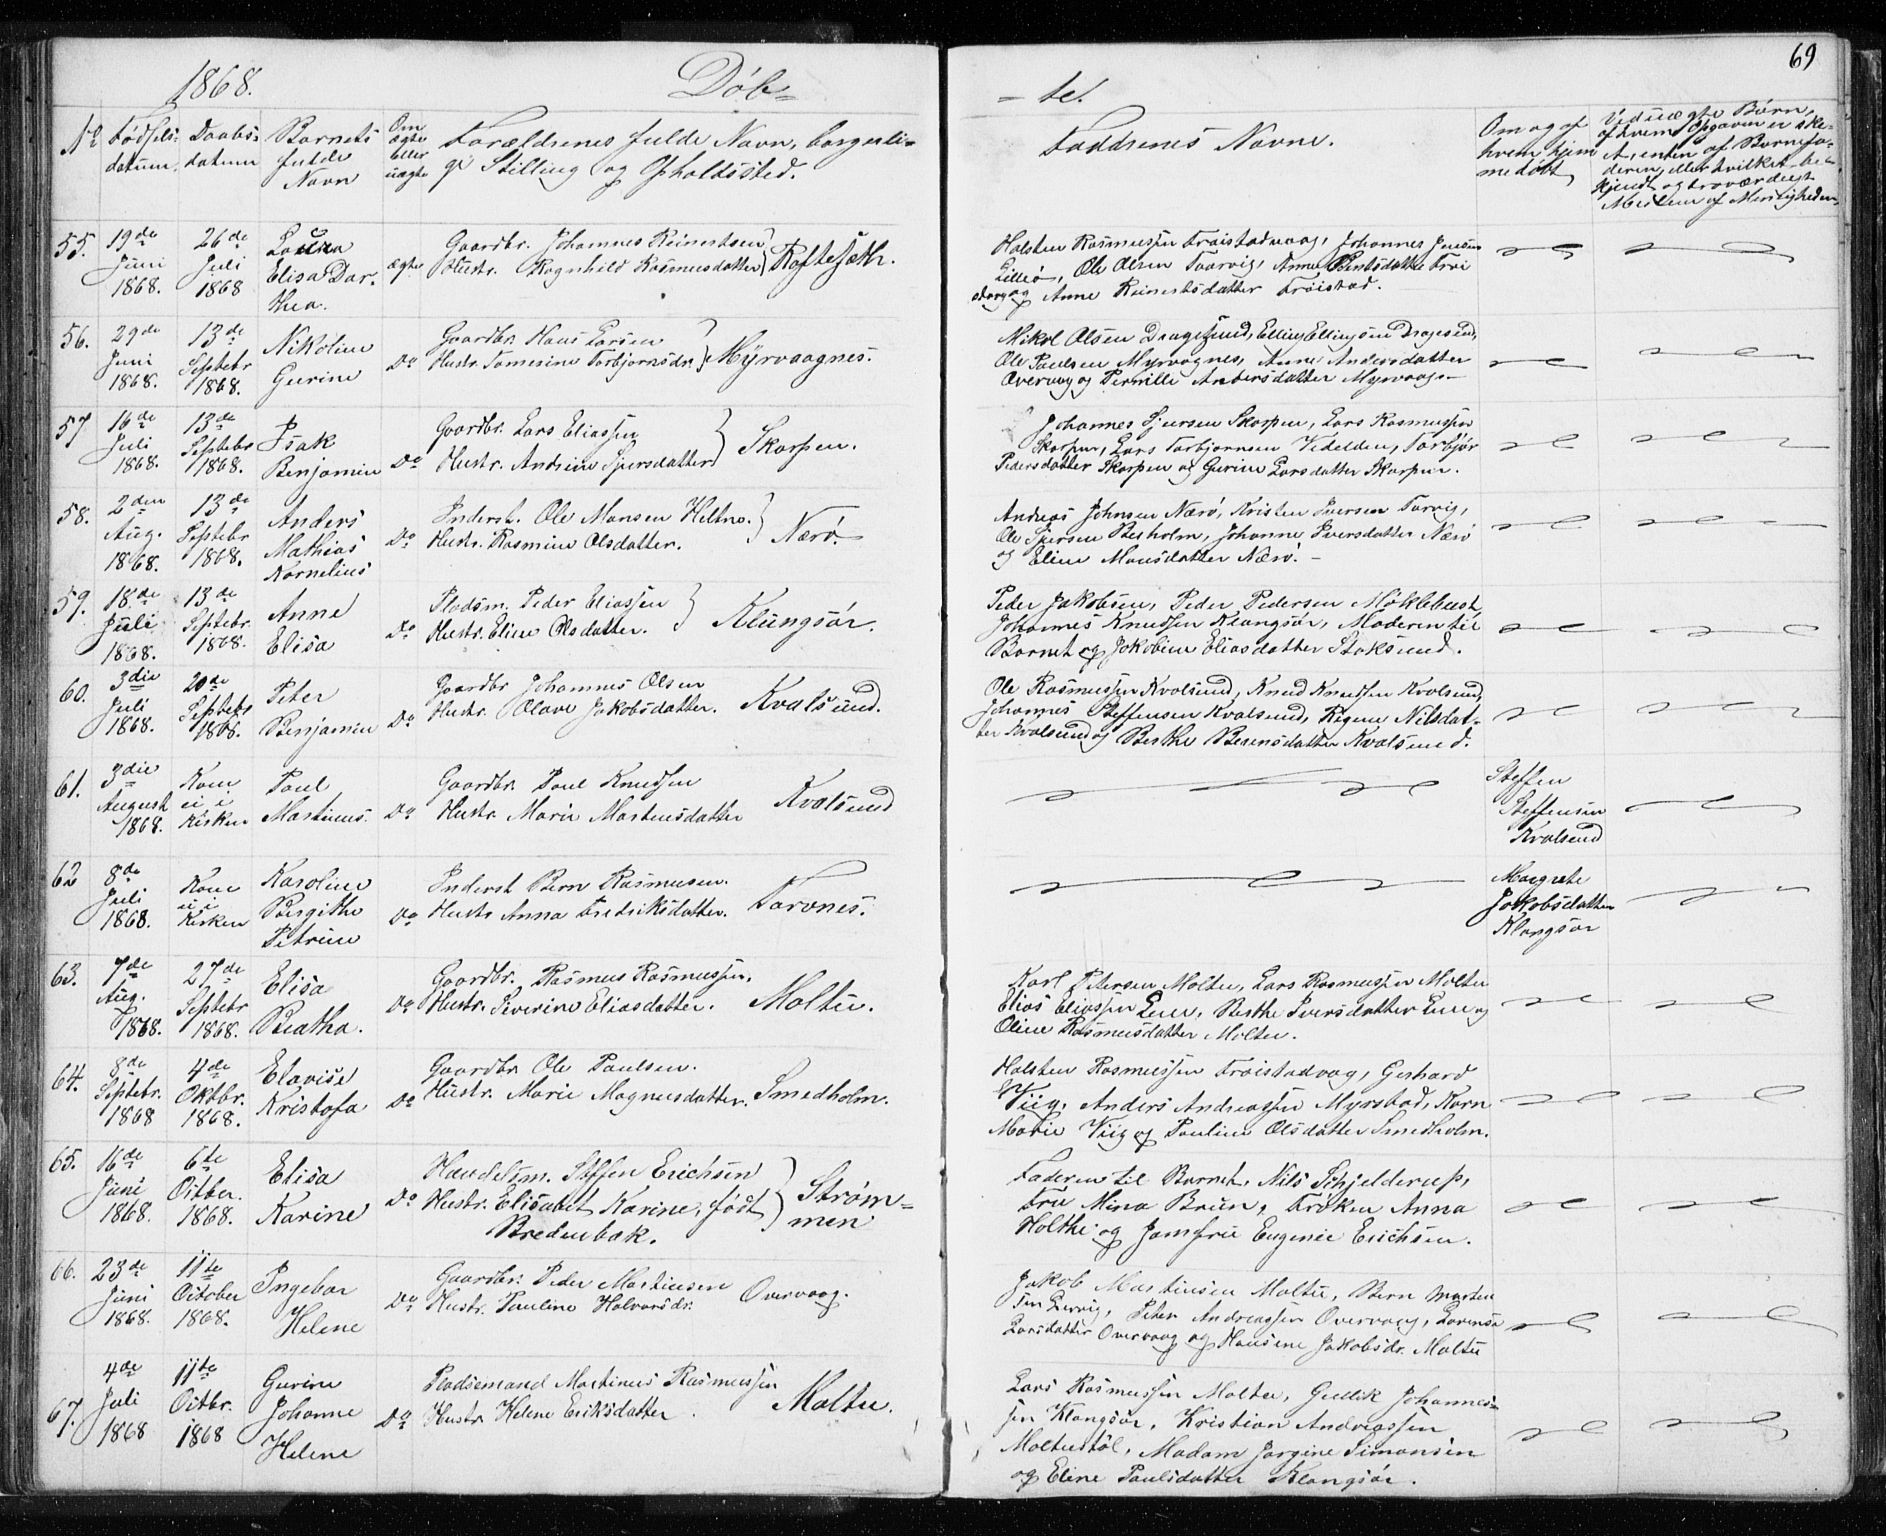 69
1868. Døb=
= te.
No Fødsels- datum. Daabs- datum Barnets fulde Navn Om ægte eller uægte Forældrenes fulde Navn, borgerli= ge Stilling og Opholdssted.
Faddernes Navne. Om og af hvem hjem medøbt Ved uægte Børn, af hvem Opgaven er ske- t, enten af Barnefa- deren, eller hvilket be- kjendt og troværdigt
55. 19de Juni 1868. 26de Juli 1868 Laura Elisa Dor- thea. ægte
Gaardbr. Johannes Reinertsen
Hustr. Ragnhild Rasmusdatter Røftesæth.
Holsten Rasmussen Frøistadvaag, Johannes Jensen
Lillø, Ole Olsen Taarvig, Anne Bentsdatter Frøi
stavaag og Anne Reinertsdatter Frøistad.
56. 29de Juni 1868. 13de Septebr 1868. Nikoline Gurine Do
Gaardbr. Hans Larsen
Hustr. Tomesine Torbjørnsdr. Myrvaagnes.
Mikal Olsen Dragesund, Elling Ellingsen Dragesund,
Ole Paulsen Myrvagnes, Anne Andersdatter
Overvaag og Pernille Andersdatter Myrvaag
57 16de Juli 1868. 13de Septebr 1868. Isak Benjamin Do
Gaardbr. Lars Eliassen
Hustr. Andrine Sjursdatter Skorpen.
Johannes Sjursen Skorpen, Lars Rasmussen
Skorpen, Lars Torbjørnsen Videlden, Torbjør
Pedersdatter Skorpen og Gurine Larsdatter Skorpen.
58. 2den Aug. 1868. 13de Septebr 1868. Anders Mathias Kornelius Do
Inderst. Ole Monsen Heltne.
Hustr. Rasmine Olsdatter. Nærø.
Andreas Johnsen Nærø, Kristen Iversen Tarvig,
Ole Sjursen Besholm, Johanne Iversdatter Nærø
og Eline Monsdatter Nærø.
59. 18de Juli 1868. 13de Septebr. 1868. Anne Elisa Do
Pladsm. Peder Eliassen
Hustr. Eline Olsdatter. Klungsør.
Peder Jakobsen, Peder Pedersen Møklebust,
Johannes Knudsen Klongsør, Moderen til
Barnet og Jakobine Eliasdatter Stoksund.
60. 3die Juli 1868. 20de Septebr 1868. Peter Benjamin Do
Gaardbr Johannes Olsen
Hustr. Olave Jakobsdatter. Kvalsund.
Ole Rasmussen Kvalsund, Knud Knudsen Kvalsund,
Johannes Steffensen Kvalsund, Regine Nilsdat-
ter Kvalsund og Berthe Berensdatter Kvalsund.
61. 3die August 1868. Kom ei i Kirken Paul Martinus. Do
Gaardbr. Paul Knudsen
Hustr. Marie Martinusdatter Kvalsund
Steffen Steffensen Kvalsund
62 8de Juli 1868. Kom ei i Kirken Karoline Bergithe Petrine Do
Inderst Bern Rasmusen.
Hustr Anna Fredriksdatter. Torvnes.
Margrete Jakobsdatter Klongsør
63. 7de Aug. 1868. 27de Septebr 1868. Elisa Beatha. Do
Gaardbr. Rasmus Rasmussen.
Hustr. Severine Eliasdatter. Moltu.
Karl Petersen Moltu, Lars Rasmussen Moltu
Elias Eliassen Leine, Berthe Iversdatter Leine og
Oline Rasmusdatter Moltu.
64. 8de Septebr. 1868 4de Oktbr. 1868. Elovise Kristofa Do
Gaardbr Ole Paulsen.
Hustr. Marie Magnusdatter. Smedholm.
Holsten Rasmussen Frøistadvag, Gerhard
Wiig, Anders Andreassen Myrstad, Karn
Marie Viig og Pauline Olsdatter Smedholm.
65. 16de Juni 1868. 6te Octber. 1868. Elisa Karine Do
Handelsm. Steffen Erichsen
Hustr. Elisabet Karine, født
Bredenbak. Strøm= men
Faderen til Barnet, Nils Schjelderup,
Fru Mina Brun, Frøken Anna
Holthe og Jomfru Eugenie Erichsen.
66. 23de Juni 1868. 11te October 1868. Ingebor Helene Do
Gaardbr. Peder Martinsen
Hustr. Pauline Halvorsdr. Overvaag.
Jakob Martinsen Moltu, Bern Morten
sen Turvig, Peter Andreassen Overvaag, Lorense
Larsdatter Overvaag og Hansine Jakobsdr. Moltu
67. 4de Juli 1868 11te Octbr. 1868 Gurine Johanne Helene Do
Pladsemand Martinus Rasmussen
Hustr Helene Eriksdatter. Moltu.
Lars Rasmussen Moltu, Gullik Johannes=
sen Klongsør, Kristian Andreassen
Moltustøl, Madam Jørgine Simonsen
og Eline Paulsdatter Klongsør.